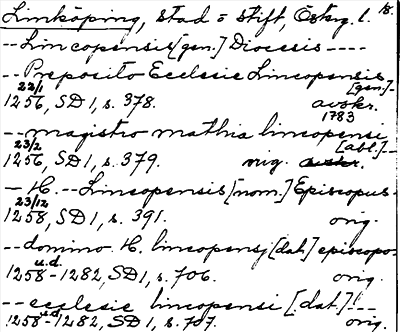 Linköping, stad o stift, Östg. l. 18.
--Lincopensis [gen.] Diocesis ----
--Preposito Ecclesie Lincopensis [gen.]-
22/1
1256, SD 1, s. 378. avskr. 1783
--magistro mathia lincopensi [abl.]--
23/2
1256, SD 1, s. 379. orig.
- H. --Lincopensis [nom.] Episcopus-
23/12
1258, SD 1, s. 391. orig.
--domino H. lincopensj [dat.] episcopo-
u.d.
1258-1282, SD 1, s. 706. orig.
--ecclesie lincopensi [dat.]---
u.d.
1258-1282, SD 1, s. 707. orig.